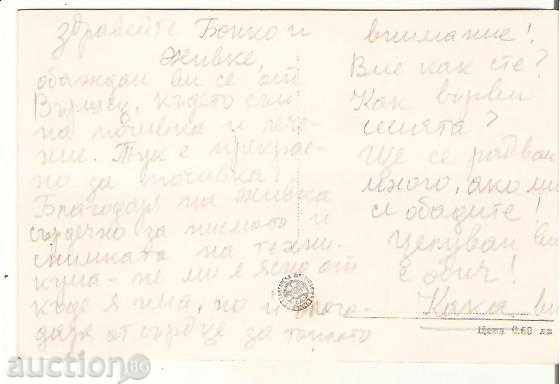 здравейте Бонко и
Живке,
обаждам ви се от
Вършец, където съм
на почивка и лече-
ние. Тук е прекрас-
но за почивка.
Благодаря на Живка
сърдечно за писмото и
снимката на
кума - не ми е ясно от
къде я има, но и благо-
даря от сърце за топлото
внимание!
Вие как сте?
Как върви
Ще се радвам
много, ако ми
се обадите!
Целувам ви
с обич!
Кака ви
Цена 0.60 лв
auction.bg